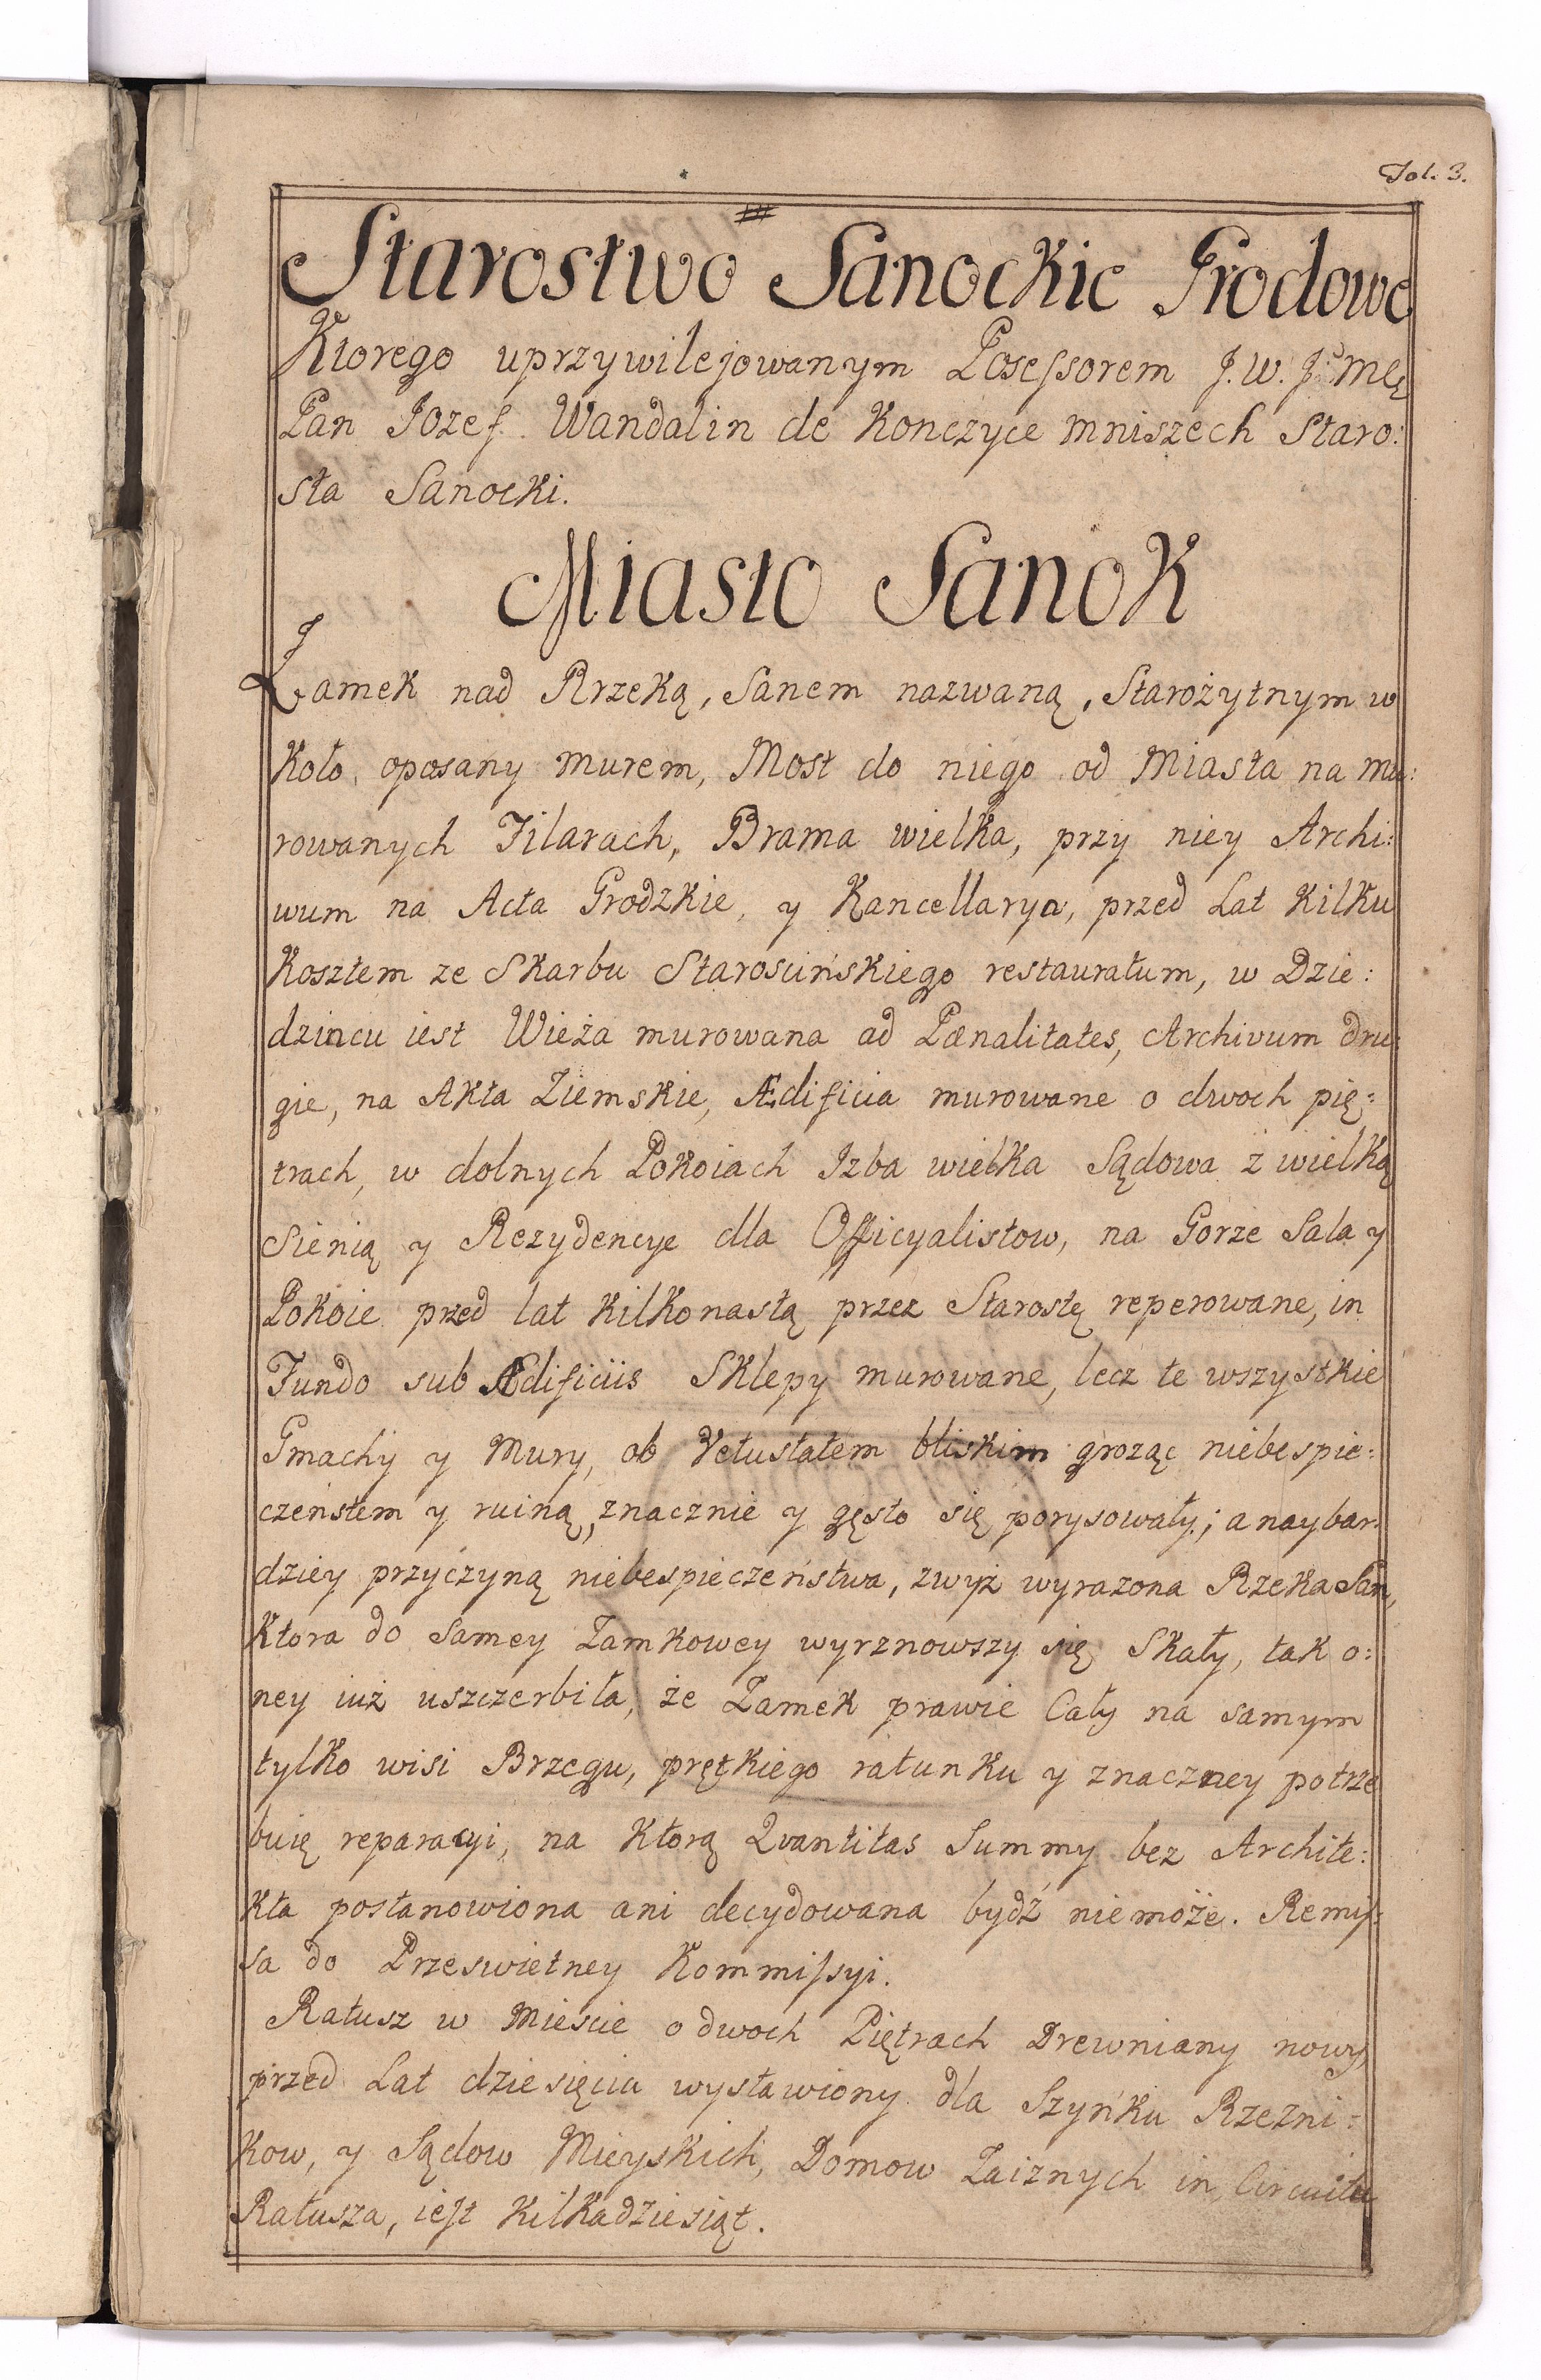 Fol. 3.
Starostwo Sanockie Grodowe
Ktorego uprzywilejowanym Posessorem J. W. Jmę
Pan Jozef Wandalin de Konczyce Mniszech Staro:
sta Sanocki.
Miasto Sanok
Zamek nad Rzeką, Sanem nazwaną, Starożytnym w
Koło opasany murem, Most do niego od Miasta na mu:
rowanych Filarach, Brama wielka, przy niey Archi:
wum na Acta Grodzkie, y Kancellarya, przed Lat Kilku
Kosztem ze Skarbu Staroscińskiego restauratum, w Dzie:
dzincu iest Wieża murowana ad Pœnalitates, Archivum dru:
gie, na Akta Ziemskie, Ædificia murowane o dwoch pię:
trach, w dolnych Pokoiach Izba wielka Sądowa z wielką
Sienią y Rezydencye dla Officyalistow, na Gorze Sala y
Pokoie przed lat kilkonastą przez Starostę reperowane, in
Fundo sub Ædificiis Sklepy murowane, lecz te wszystkie
Gmachy y Mury, ob Vetustatem bliskim grożąc niebespie:
czeństem y ruiną, znacznie y gęsto się porysowały; a naybar:
dziey przyczyną niebespieczeństwa, zwyż wyrazona Rzeka San,
Ktora do Samey Zamkowey wyrznowszy się Skały, tak o:
ney iuż uszczerbiła, że Zamek prawie Cały na samym
tylko wisi Brzegu, prętkiego ratunku y znaczney potrze
buię reparacyi, na Ktorą Qvantitas Summy bez Archite:
kta postanowiona ani decydowana bydź niemoże. Remis:
sa do Przeswietney Kommissyi.
Ratusz w Miescie o dwoch Piętrach Drewniany nowy,
przed Lat dziesięciu wystawiony dla Szynku Rzezni:
kow, y Sądow Mieyskich, Domow Zaiznych in Circuitu
Ratusza, iest Kilkadziesiąt.